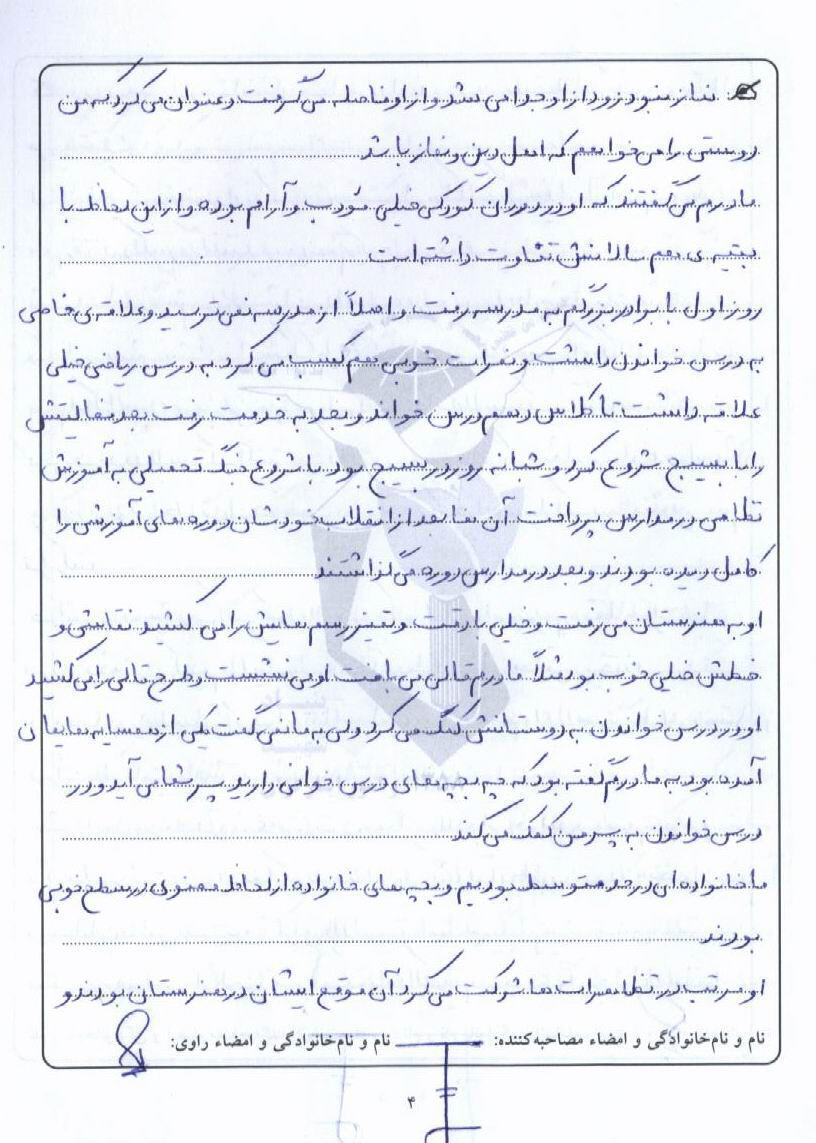 نماز نبود زود از او جدا می شد و از او فاصله می گرفت و عنوان می کرد که من
دوستی را می خواهم که اهل دین و نماز باشد
مادرم می گفتند که او در دوران کودکی خیلی مؤدب و آرام بوده و از این لحاظ با
بقیه ی هم سالانش تفاوت داشته است
روز اول با برادر بزرگم به مدرسه رفت و اصلاً از مدرسه نمی ترسید و علاقه ی خاصی
به درس خواندن داشت و نمرات خوبی هم کسب می کرد به درس ریاضی خیلی
علاقه داشت تا کلاس دهم درس خواند و بعد به خدمت رفت بعد فعالیتش
را با بسیج شروع کرد و شبانه روز در بسیج بود با شروع جنگ تحمیلی به آموزش
نظامی در مدارس پرداخت آن ها بعد از انقلاب خودشان دوره های آموزشی را
کامل دیده بودند و بعد در مدارس دوره می گذاشتند
او به هنرستان می رفت و خیلی با دقت و تمیز رسم هایش را می کشید نقاشی و
خطش خیلی خوب بود مثلاً مادرم قالی می بافت او می نشست و طرح قالی را می کشید
او در درس خواندن به دوستانش کمک می کرد ولی به ما نمی گفت یکی از همسایه هایمان
آمده بود به مادرم گفته بود که چه بچه های درس خوانی دارید پسر شما می آید و در
درس خواندن به پسر من کمک می کند
ما خانواده ای در حد متوسط بودیم و بچه های خانواده از لحاظ معنوی در سطح خوبی
بودند
او مرتب در تظاهرات ها شرکت می کرد آن موقع ایشان در هنرستان بودند و
نام و نام خانوادگی و امضاء مصاحبه کننده: نام و نام خانوادگی و امضاء راوی:
۴